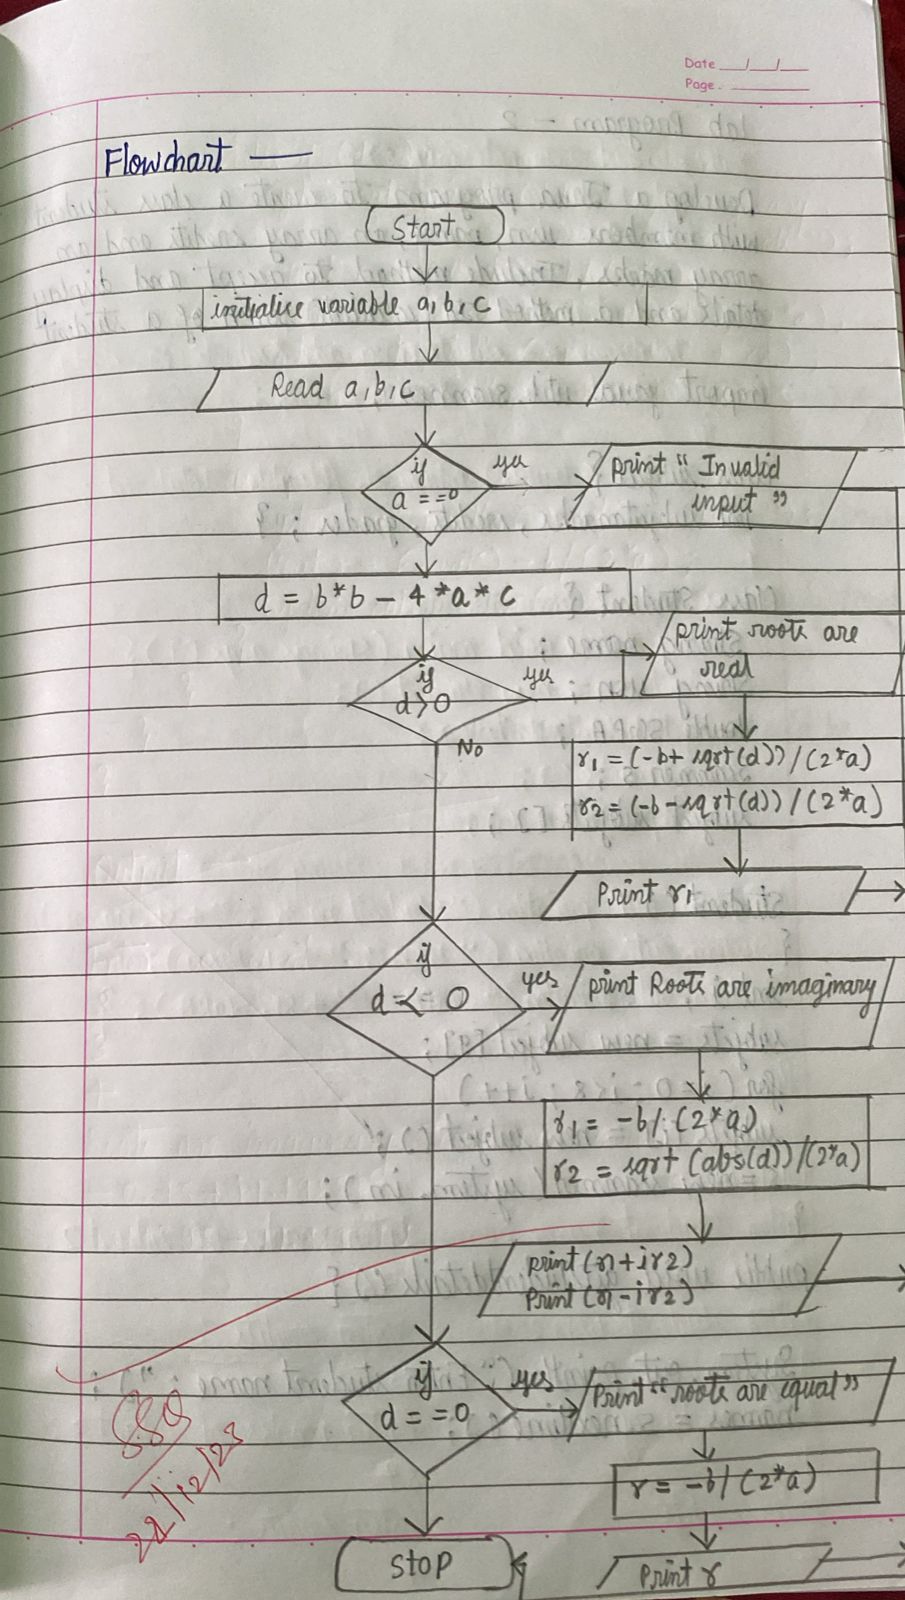 Date __/__/__
Page.
Flowchart —
Start
initialise variable a,b,c
Read a,b,c
if
a = =0
yes
print " Invalid
input "
d = b*b - 4 *a* c
if
d>0
yes
No
print roots are
real
r1 = (-b+ sqrt(d)) / (2*a)
r2 = (-b - sqrt(d)) / (2*a)
Print r1
if
d <= 0
yes
print Roots are imaginary
r1 = -b / (2*a)
r2 = sqrt (abs(d)) / (2*a)
print (r1+ir2)
Print (r1-ir2)
if
d = =0
yes
Print "roots are equal"
r = -b / (2*a)
Print r
Stop
22/12/23